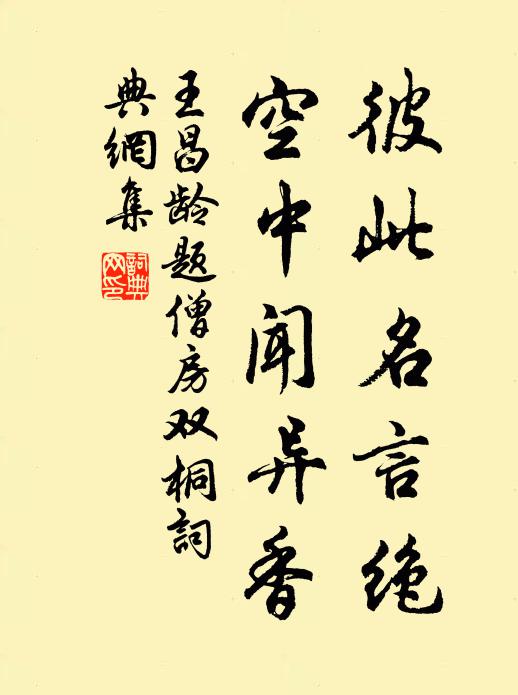 彼此名言绝
空中闻异香
王昌龄题僧房双桐詞
典網集
詞典网印